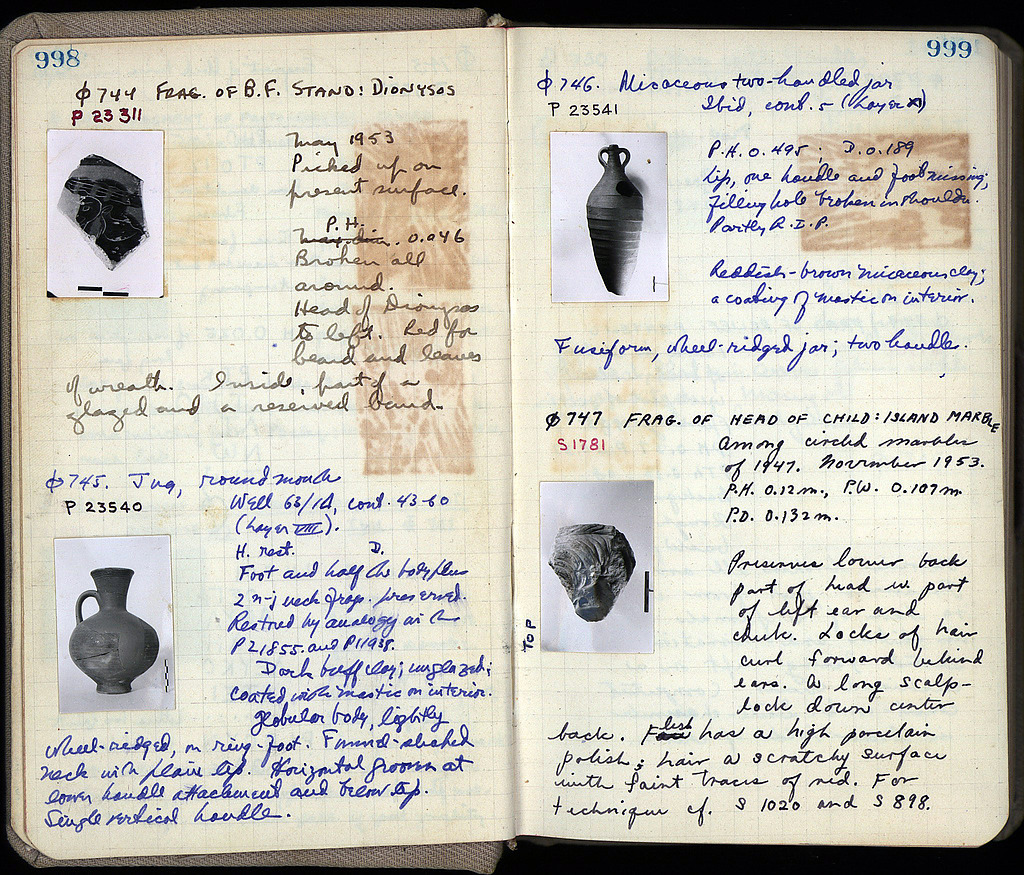 998
Φ744 FRAG. OF B.F. STAND: DIONYSOS
P 23311
May 1953
Picked up on
present surface.
P.H.
max. dim. 0.046
Broken all
around.
Head of Dionysos
to left. Red for
beard and leaves
of wreath. Inside, part of a
glazed and a reserved band.
Φ745. Jug, round mouth
P 23540
Well 63/1A, cont. 43-60
(Layer VIII).
H. rest. D.
Foot and half the body plus
2 n-j neck frags. preserved.
Restored by analogy with
P21855 and P11938.
Dark buff clay; unglazed;
coated with mastic on interior.
Globular body, lightly
wheel-ridged, on ring-foot. Funnel-shaped
neck with plain lip. Horizontal grooves at
lower handle attachment and below lip.
Single vertical handle.
999
Φ746. Micaceous two-handled jar
P 23541
Ibid, cont. 5 (Layer XI)
P.H. 0.495; D. 0.189
Lip, one handle and foot missing;
filling hole broken in shoulder.
Partly R.I.P.
Reddish-brown micaceous clay;
a coating of mastic on interior.
Fusiform, wheel-ridged jar; two handles.
Φ747 FRAG. OF HEAD OF CHILD: ISLAND MARBLE
S1781
Among circled marbles
of 1947. November 1953.
P.H. 0.12m., P.W. 0.107m
P.D. 0.132m.
TOP
Preserves lower back
part of head w. part
of left ear and
cheek. Locks of hair
curl forward behind
ears. A long scalp-
lock down center
back. Flesh has a high porcelain
polish; hair a scratchy surface
with faint traces of red. For
technique cf. S 1020 and S 898.